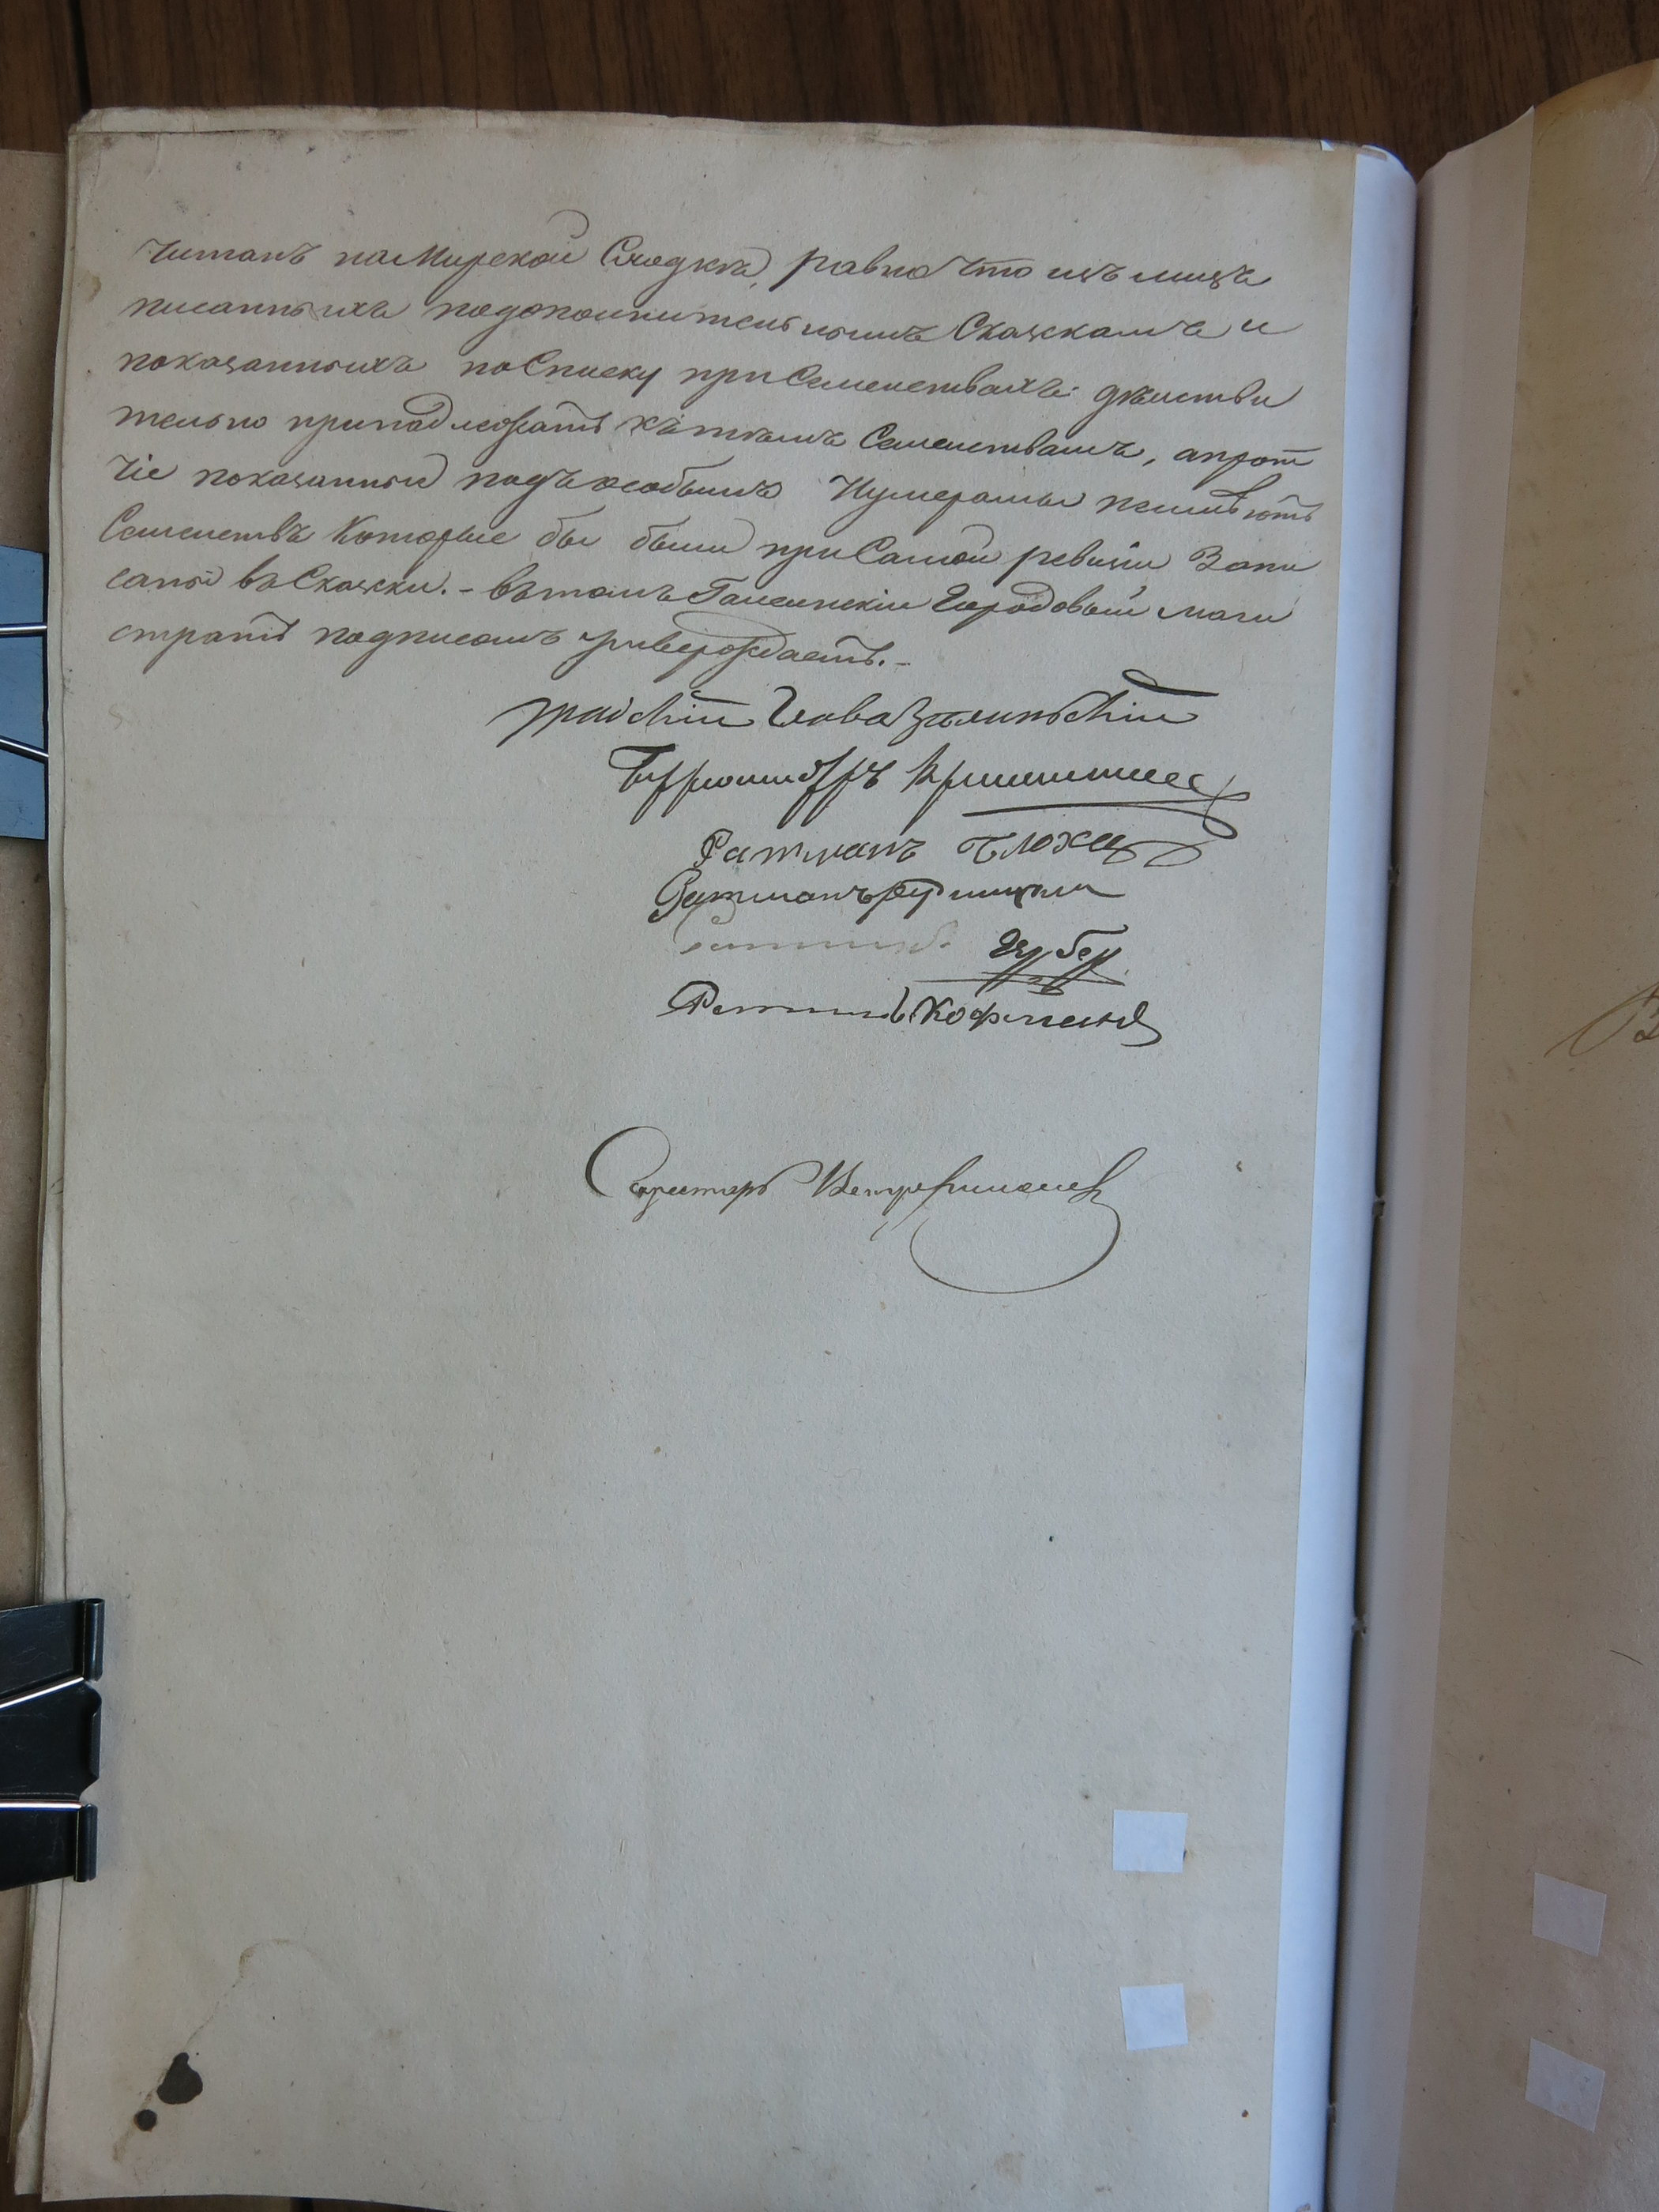 читанъ на Мирской Сходкѣ, равно что изъ лицъ
писанныхъ по дополнительнымъ Сказкамъ и
показанныхъ по Списку при Семействахъ действи
тельно принадлежатъ къ тѣмъ Семействамъ, а прот
чіе показанныя подъ особымъ Нумерамы неимѣютъ
Семействъ Которые бы были при Самой ревизіи Запи
саны въ Сказки. – въ томъ Гайсинскій Городовый маги
стратъ подписомъ утверждаетъ. –
Градскій Глова
Бургомистръ
Ратманъ Блохъ
Ратманъ
Гербер
Ратманъ Кофманъ
Секретарь